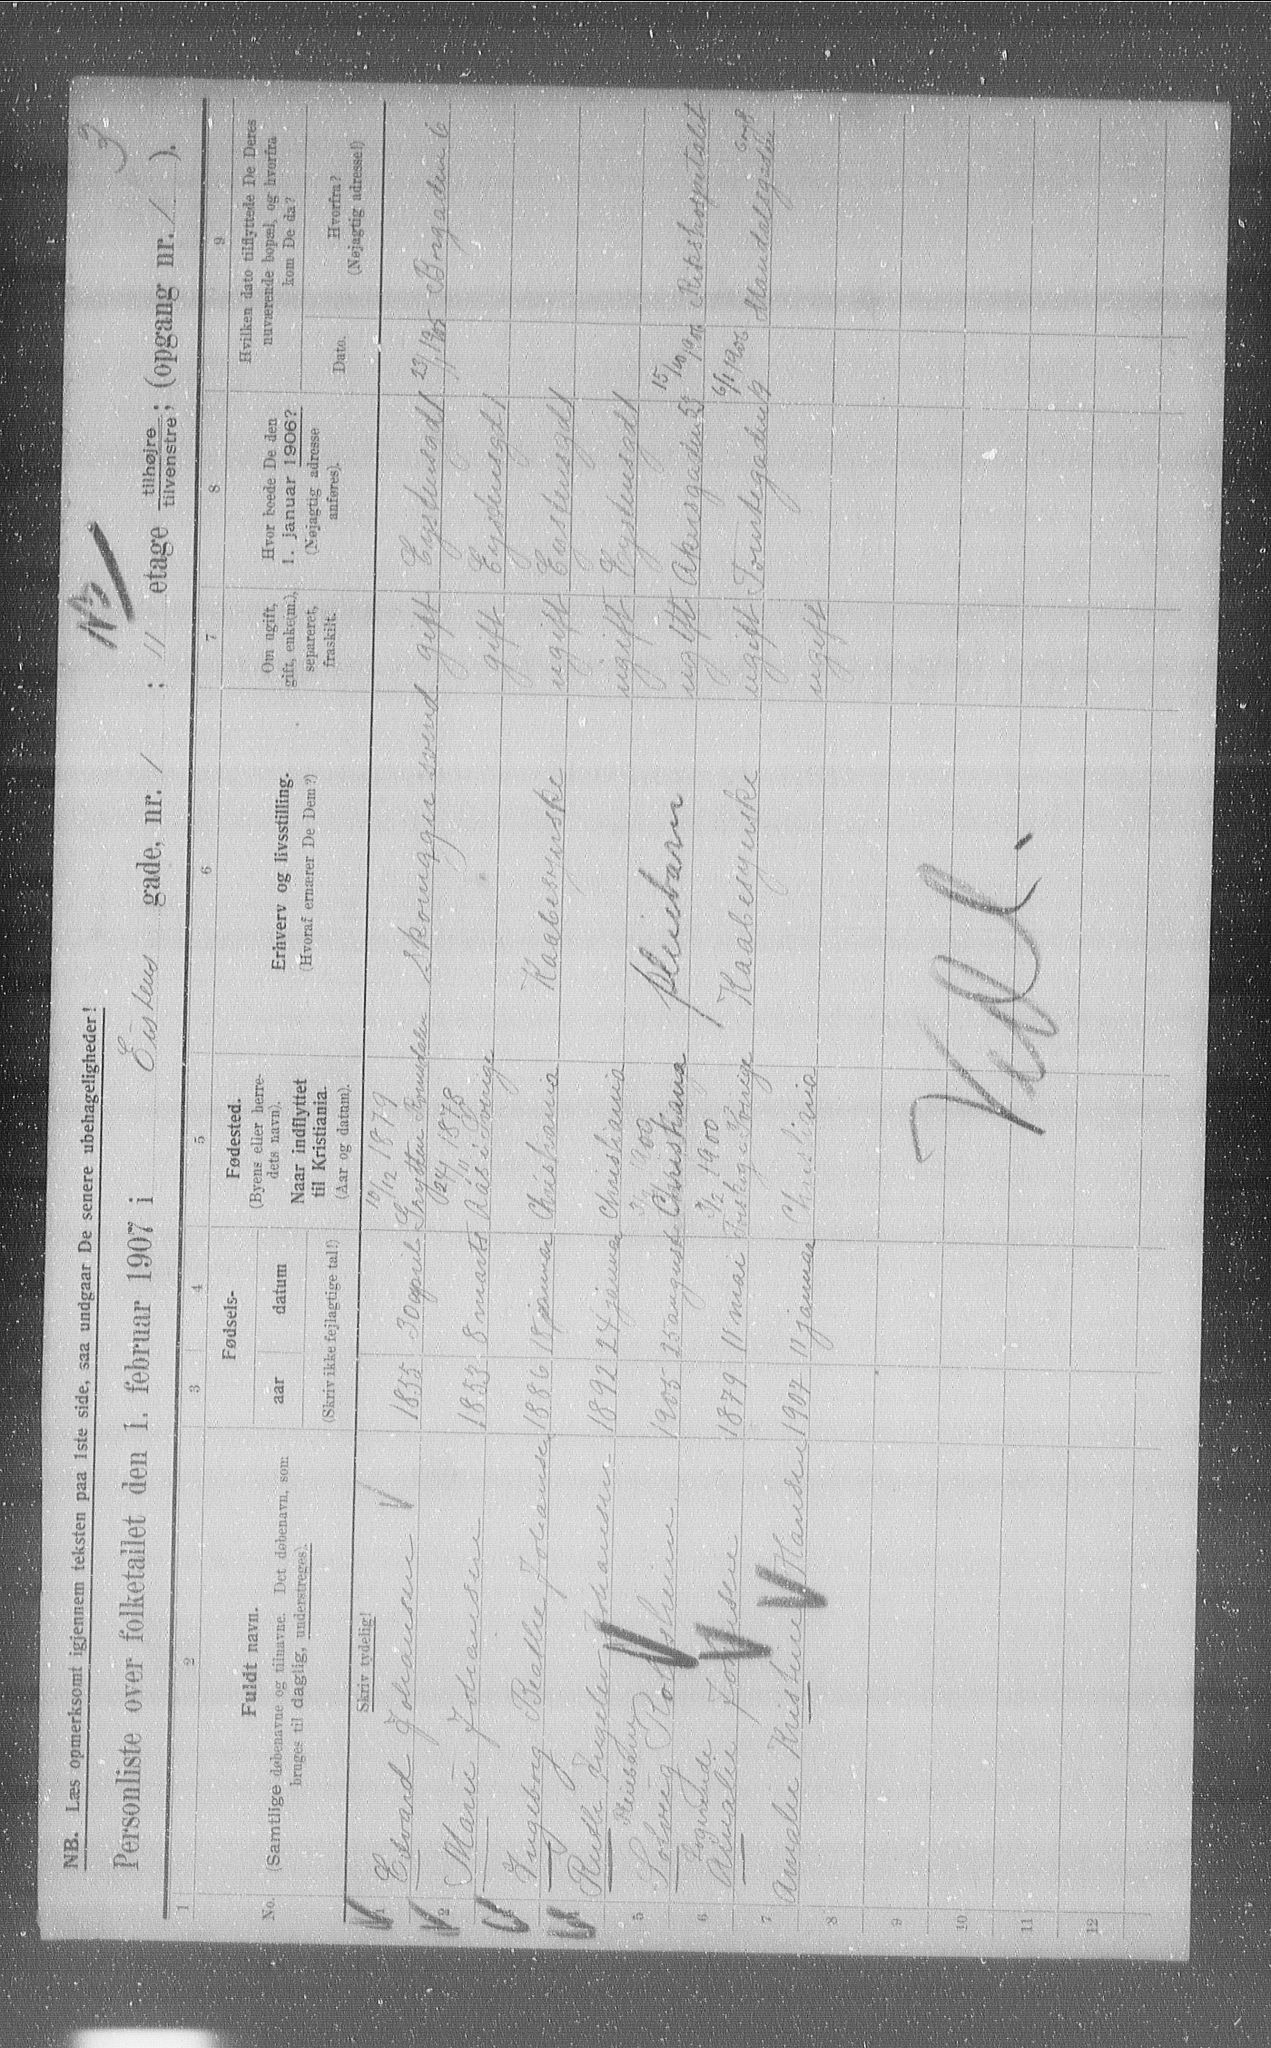 NB. Læs opmerksomt igjennem teksten paa 1ste side, saa undgaar De senere ubehageligheder!
3
N 3
Personliste over folketallet den 1. februar 1907 i Eistens gade, nr. 1 ; II etage tilhøjre tilvenstre; (opgang nr. / ).
1 2 3 4 5 6 7 8 9
No.
Fuldt navn.
(Samtlige døbenavne og tilnavne. Det døbenavn, som
bruges til daglig, understreges).
Fødsels-
aar datum
(Skriv ikke fejlagtige tal!)
Fødested.
(Byens eller herre-
dets navn).
Naar indflyttet
til Kristiania.
(Aar og datum).
Erhverv og livsstilling.
(Hvoraf ernærer De Dem?)
Om ugift,
gift, enke(m.),
separeret,
fraskilt.
Hvor boede De den
1. januar 1906?
(Nøjagtig adresse
anføres).
Hvilken dato tilflyttede De Deres
nuværende bopæl, og hvorfra
kom De da?
Dato.
Hvorfra?
(Nøjagtig adresse!)
Skriv tydelig!
10/12 1879
1 Edvard Johansen 1855 30 april Grytten Romsdalen Skomagersvend gift Eystensgd 1 23/ 1905 Borgaden 6
24/11 1878
2 Marie Johansen 1853 8 marts Aas i Sverige gift Eystensgd 1
3 Ingeborg Bolette Johansen 1886 18 januar Christiania Kaabesyerske ugift Eystensgd 1
4 Ruth Ingeler Johansen 1892 24 januar Christiania ugift Eystensgd 1
Pleiebarn
5 Solveig 1905 25 august Christiania pleiebarn ugift Akersgaden 53 15/10 1906 Rikshospitalet
Logerende 3/2 1900
6 Amalie Johnsen 1879 11 mai Sverige Kaabesyerske ugift Tomtegaden 9 6/1 1906 Mandalsgaden
7 Amalie Kristine Hansen 1907 11 januar Christiania ugift
8
9
10
11
12